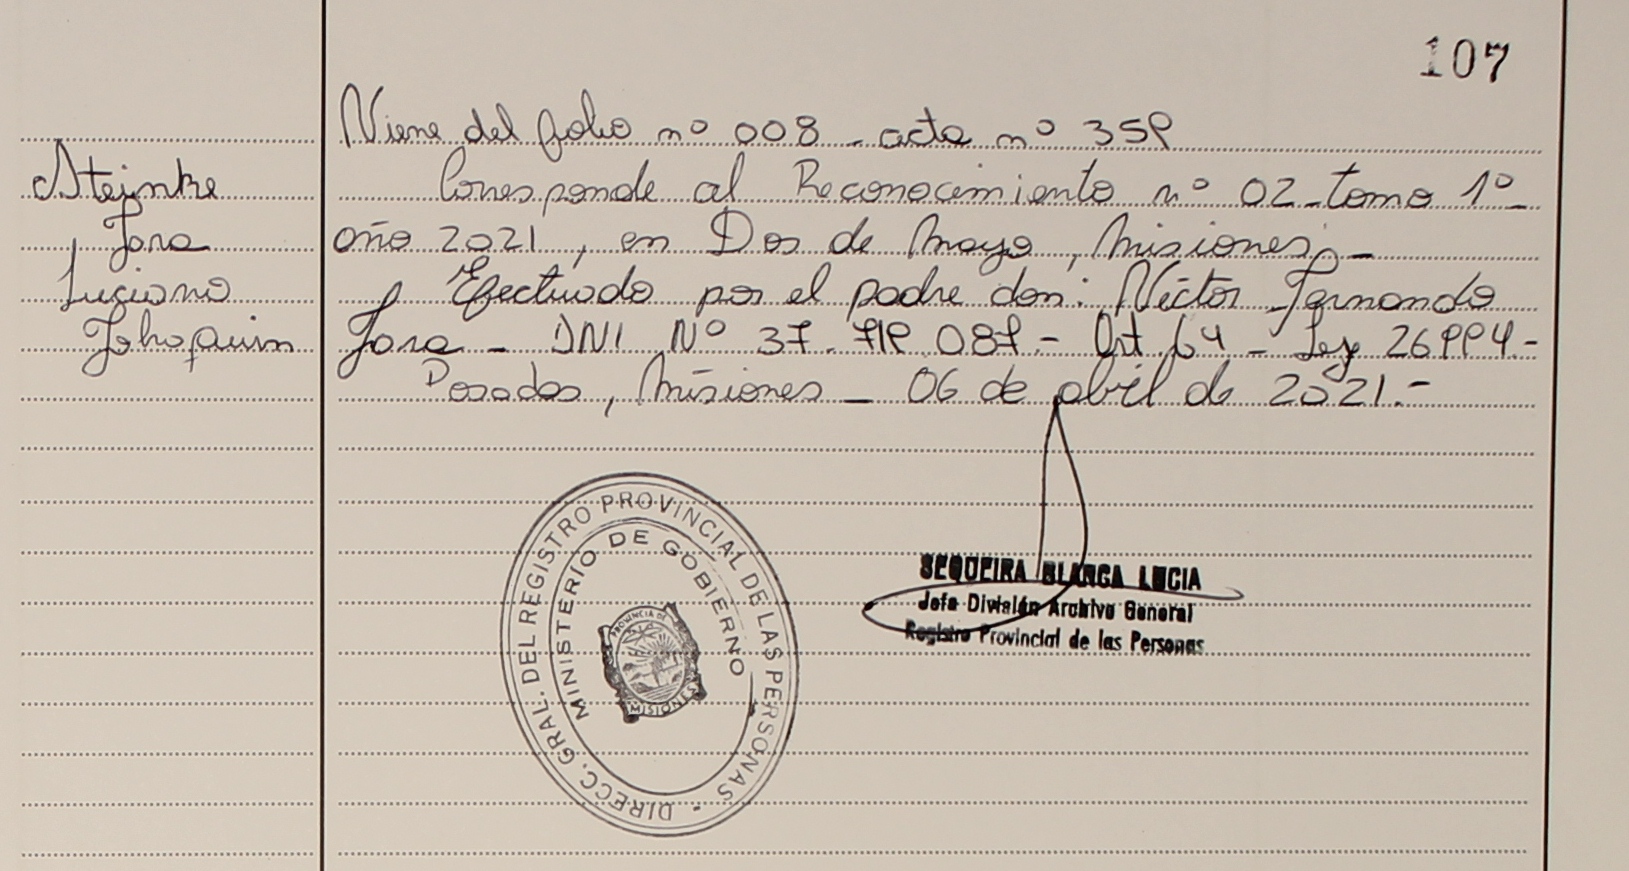 107
Viene del folio nº 008 - acta nº 359
Steinke
Corresponde al Reconocimiento nº 02 - tomo 1º -
Jara
año 2021, en Dos de Mayo, Misiones. -
Luciano
Efectuado por el padre don: Néctor Fernando
Jhoaquin
Jara - DNI Nº 37.719.087.- Art. 64 - Ley 26994.-
Posadas, Misiones - 06 de abril de 2021.-
DIRECC. GRAL. DEL REGISTRO PROVINCIAL DE LAS PERSONAS -
MINISTERIO DE GOBIERNO
PROVINCIA DE
MISIONES
SEQUEIRA BLANCA LUCIA
Jefa División Archivo General
Registro Provincial de las Personas